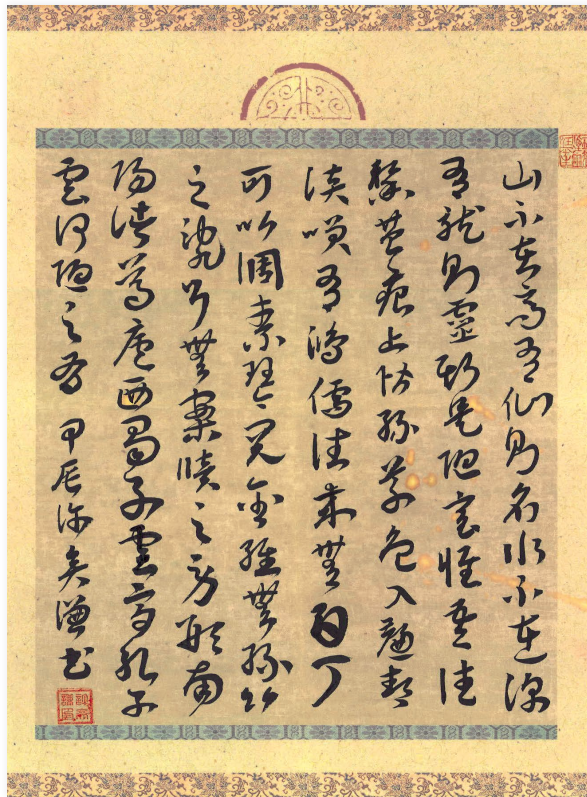 山不在高有仙則名水不在深
有龍則靈斯是陋室惟吾德
馨苔痕上階綠草色入簾青
談笑有鴻儒往來無白丁
可以調素琴閱金經無絲竹
之亂耳無案牘之勞形南
陽諸葛廬西蜀子雲亭孔子
雲何陋之有 甲辰 謙書